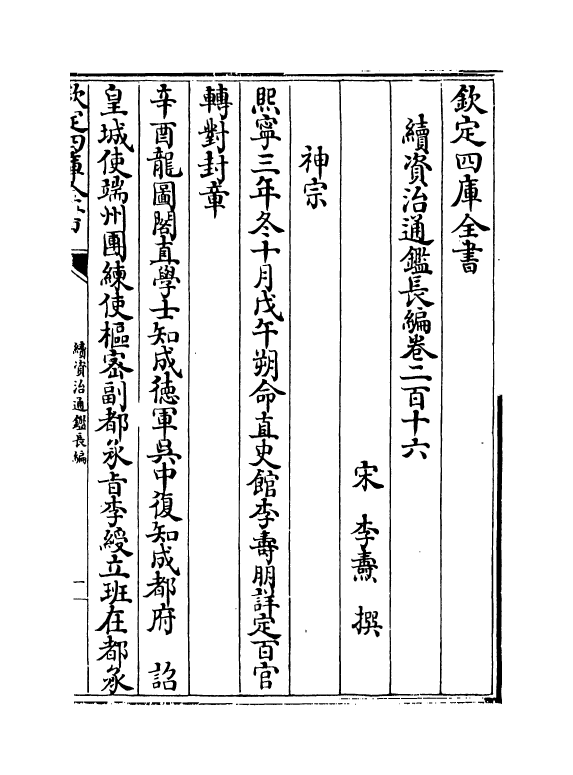 欽定四庫全書
續資治通鑑長編卷二百十六
宋 李燾 撰
神宗
熙寧三年冬十月戊午朔命直史館李壽朋詳定百官
轉對封章
辛酉龍圖閣直學士知成徳軍吳中復知成都府 詔
皇城使端州團練使樞宻副都承㫖李綬立班在都承
欽定四庫全書
續資治通鑑長編
一